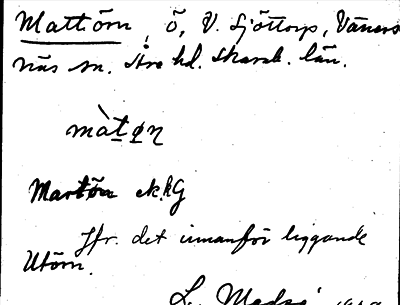 Mattörn, ö, V. Sjötorp, Väners
näs sn. Åse hd. Skarab. län.
màtøɳ
Martörn ekkG
Jfr. det innanför liggande
Utörn.
L.